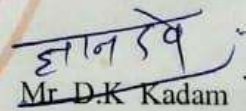 ज्ञानदेव
Mr D.K Kadam